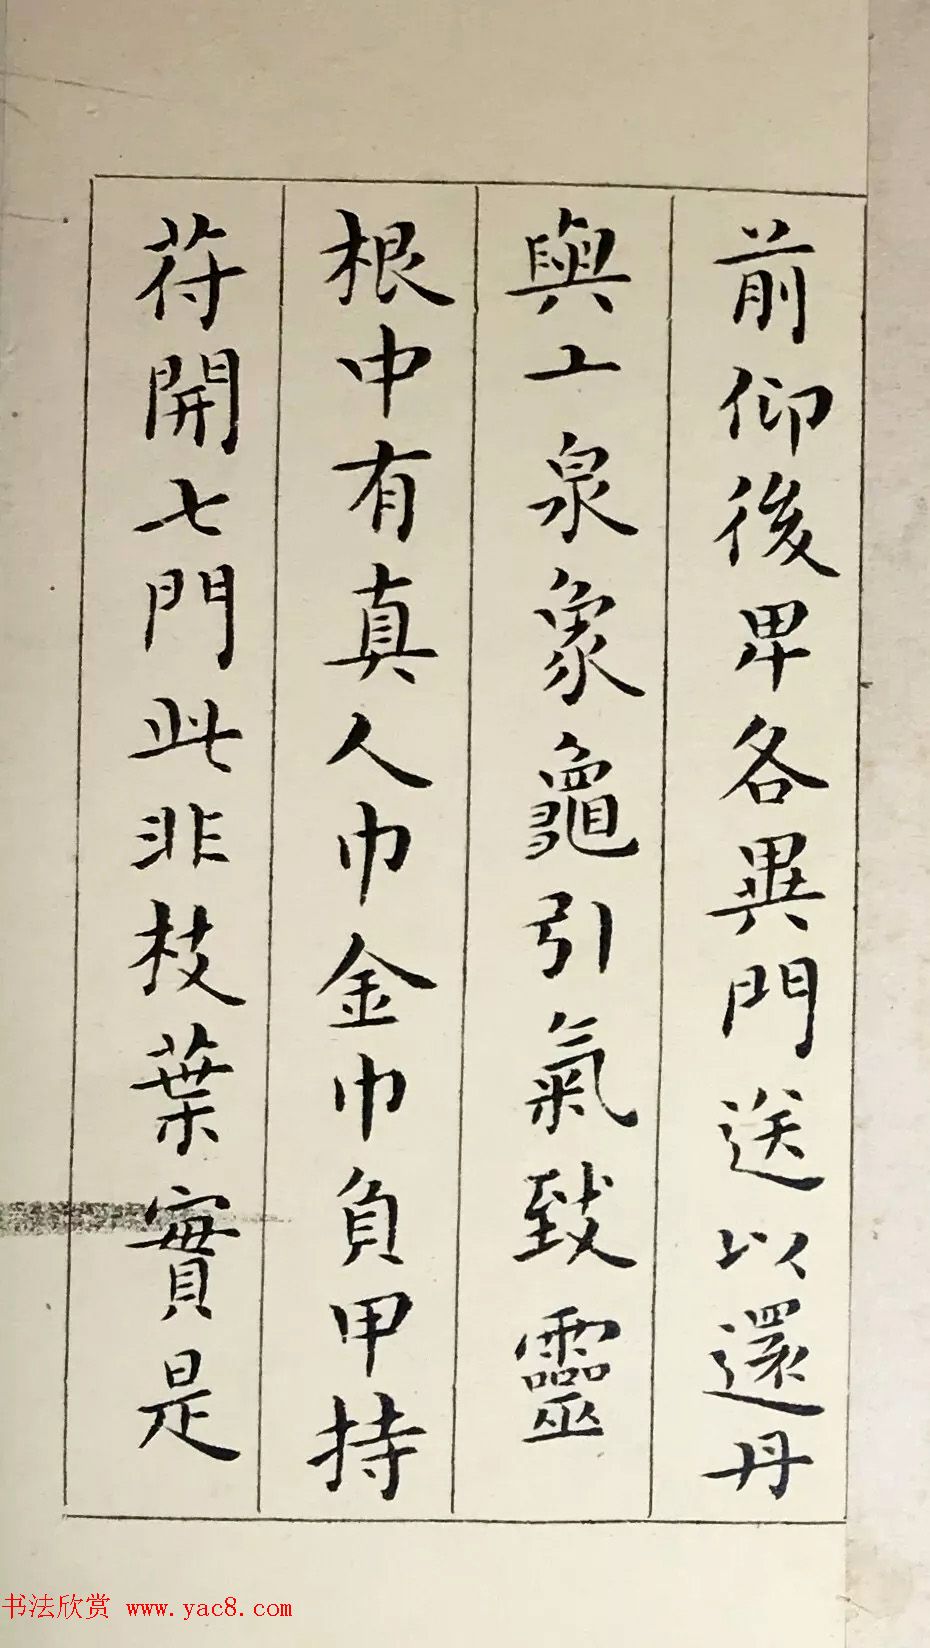 前仰後卑各異門送以還丹
與工泉象龜引氣致靈
根中有真人巾金巾負甲持
苻開七門此非枝葉實是
书法欣赏 www.yac8.com